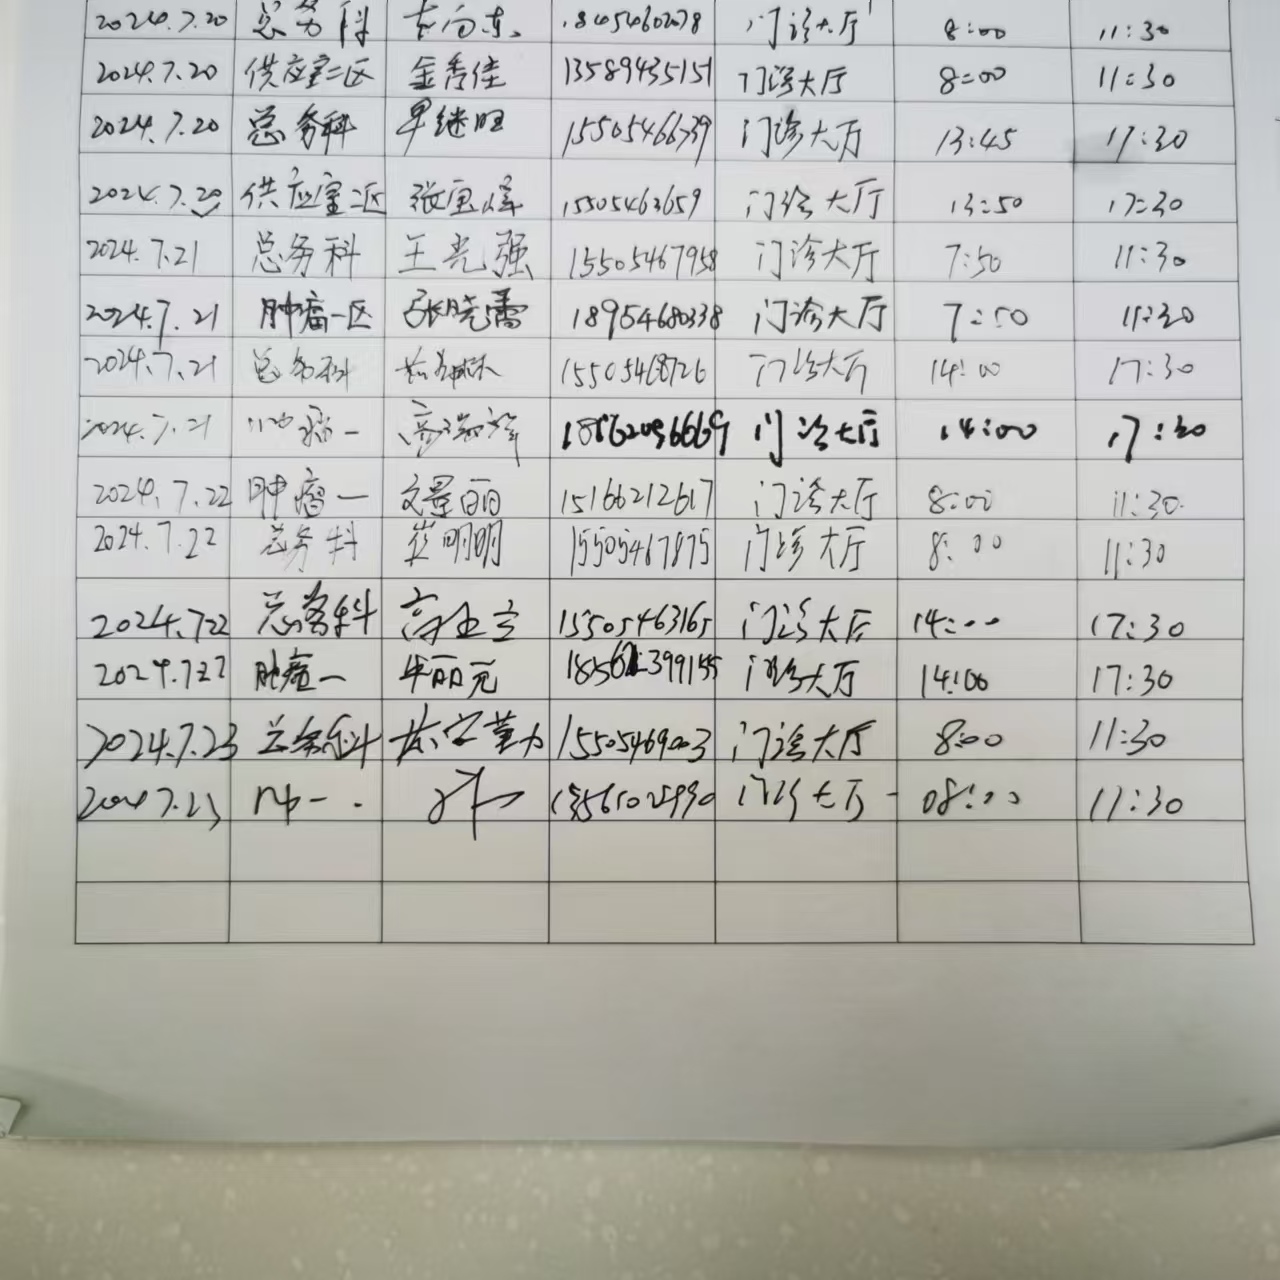 2024.7.20 总务科 门诊大厅 8:00 11:30
2024.7.20 供应室二区 金秀佳 13589435151 门诊大厅 8:00 11:30
2024.7.20 总务科 15505466739 门诊大厅 13:45 17:30
2024.7.20 供应室二区 张宝峰 15505463659 门诊大厅 13:50 17:30
2024.7.21 总务科 王光强 15505467958 门诊大厅 7:50 11:30
2024.7.21 肿瘤一区 张晓蕾 18954680338 门诊大厅 7:50 11:30
2024.7.21 总务科 15505468726 门诊大厅 14:00 17:30
2024.7.21 门诊大厅 14:00 17:30
2024.7.22 肿瘤一 文景丽 15166212617 门诊大厅 8:00 11:30.
2024.7.22 总务科 崔明明 15505467875 门诊大厅 8:00 11:30
2024.7.22 总务科 15505463165 门诊大厅 14:00 17:30
2024.7.22 肿瘤一 门诊大厅 14:00 17:30
2024.7.23 总务科 15505469003 门诊大厅 8:00 11:30
门诊大厅 08:00 11:30